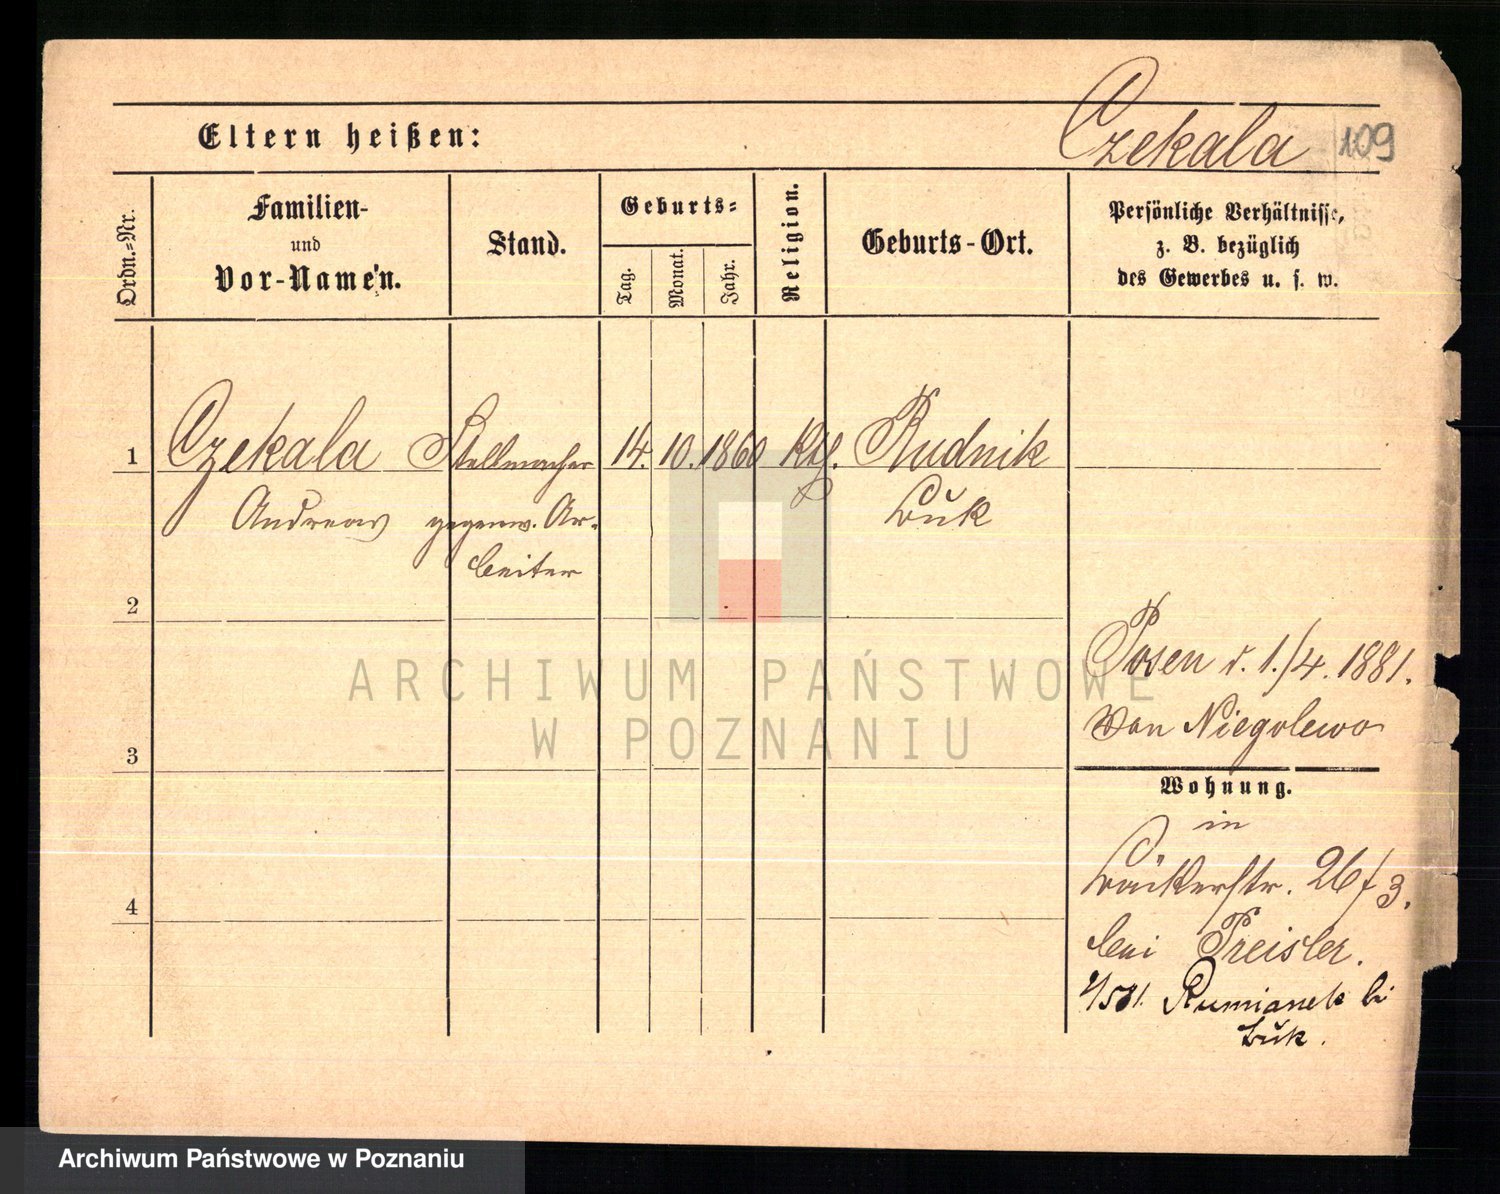 Eltern heißen:
Czekala 109
Ordn.-Nr.
Familien-
und
Vor-Namen.
Stand.
Geburts=
Tag.
Monat.
Jahr.
Religion.
Geburts-Ort.
Persönliche Verhältnisse,
z. B. bezüglich
des Gewerbes u. s. w.
1 Czekala Stellmacher 14. 10. 1860 Kth. Rudnik
Andreas gegenw. Ar-
beiter
Buk
2
3
4
Posen d. 1./4. 1881.
von Niegolewo
Wohnung.
in
Bäckerstr. 26/3.
bei Preisler.
581. Rumianek bei
Buk.
ARCHIWUM PAŃSTWOWE
W POZNANIU
Archiwum Państwowe w Poznaniu